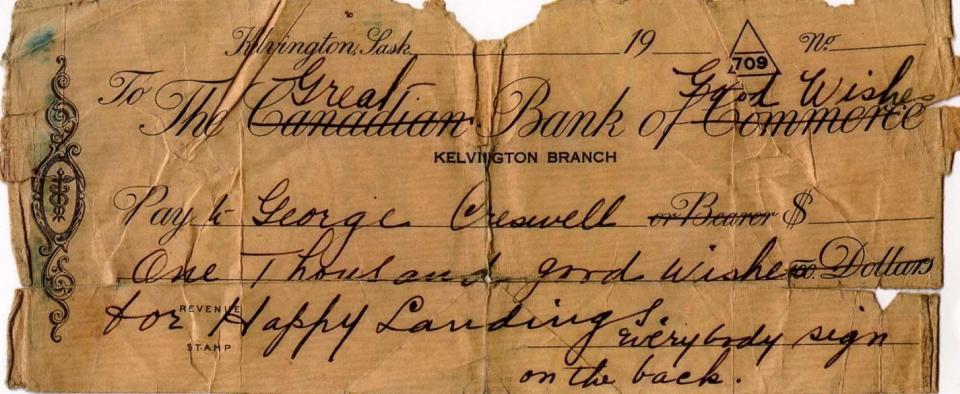 Kelvington, Sask. 19 No.
709
Great Good Wishes
To The Canadian Bank of Commerce
KELVINGTON BRANCH
Pay to George Creswell or Bearer $
One Thousand good wishes Dollars
for Happy Landings
REVENUE
STAMP
Everybody sign
on the back.